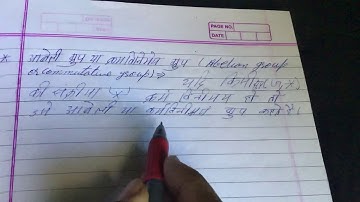 PAGE NO.
DATE
* आबेली ग्रुप या क्रमविनिमेय ग्रुप (Abelian group
or commutative group) ⇒
यदि किसी
की संक्रिया क्रम विनिमय हो तो
उसे आबेली या क्रमविनिमय ग्रुप कहते हैं।